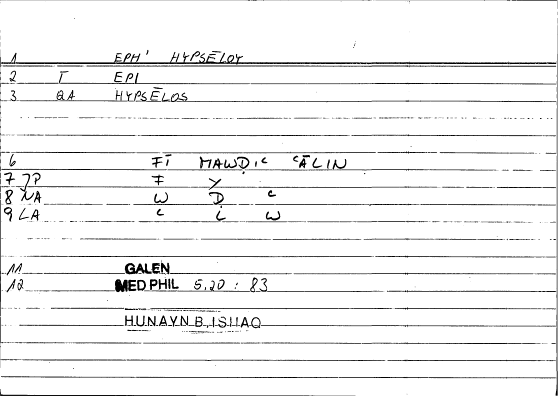 1 EPH' HYPSĒLOY
2 T EPI
3 QA HYPSĒLOS
6 FĪ MAWḌIʿ ʿĀLIN
7 JP F Y
8 NA W Ḍ ʿ
9 LA ʿ L W
11 GALEN
12 MED PHIL 5.20 : 83
HUNAYN B. ISHAQ